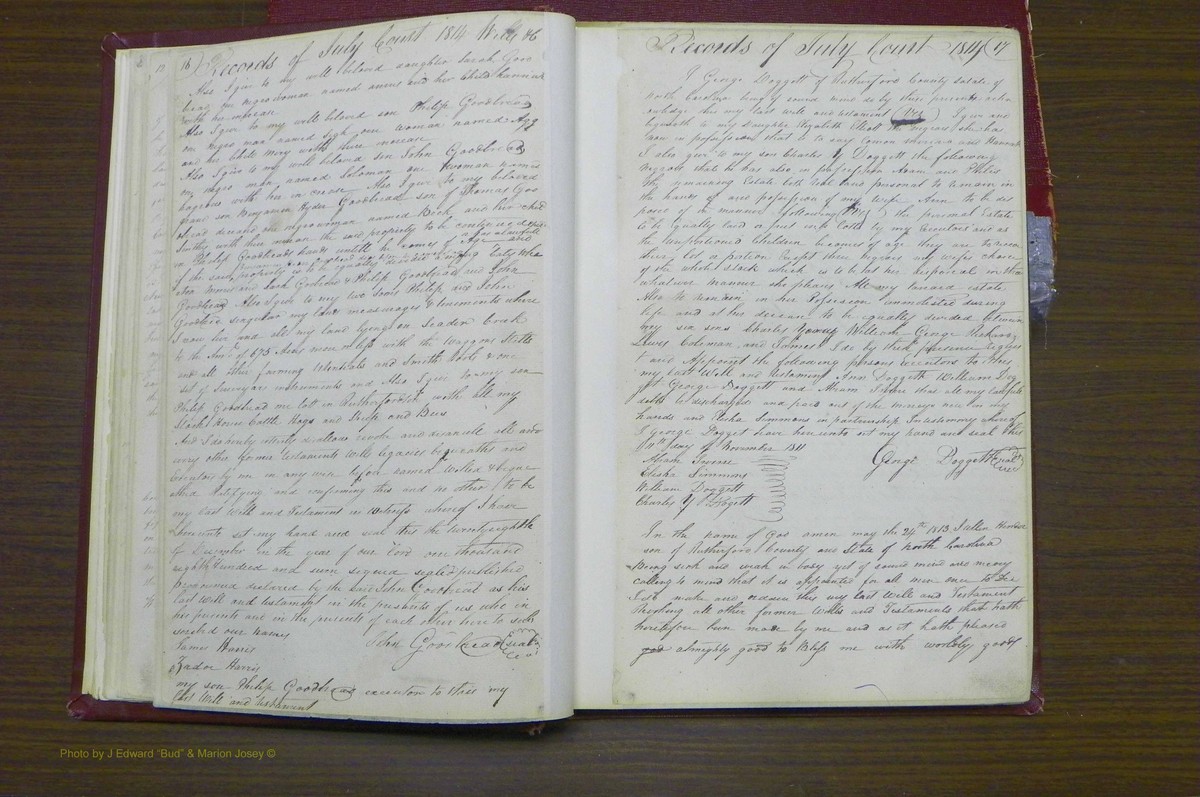 16 Records of July Court 1814 Will 06
Also I give to my well beloved daughter Sarah Goo
one negro woman named and her Child
with her increase
Also I give to my well beloved son Philip Goodbread
one negro man named one woman named Agg
and her Child Mary with there increase
Also I give to my well beloved son John Goodbread
one negro man named Soloman one woman named
with her increase Also I give to my beloved
grand son Benjamin Goodbread son of Thomas Goo
bread deceased one negro woman named and her child
with their increase the said property to be
in Philip Goodbreads hands untill he comes of Age and
if the said property is to be equally
and Sarah & Philip Goodbread and John
Goodbread Also I give to my two sons Philip and John
Goodbread my land messuages & tenements where
I now live and all my land lying on Creek
to the Amt. of 675 Acres more or less with the Waggons Stills
and all other farming Utentials and Smith tools & one
set of Surveyors instruments and Also I give to my son
Philip Goodbread one lott in Rutherfordton with all my
Stock of Horses Cattle Hogs and Sheep and Bees
And I do hereby utterly disallow revoke and disanulle all and
every other former Testaments Wills legacies bequeaths and
Executors by me in any wise before named Willed & bequea
thed Ratifying and confirming this and no other to be
my last Will and Testament in Witness whereof I have
hereunto set my hand and seal this the twenty eighth
of December in the year of our Lord one thousand
eight hundred and seven signed sealed published
pronounced declared by the said John Goodbread as his
last will and testament in the presents of us who in
his presents and in the presents of each other have to sub
scribed our names
John Goodbread Seal
James Harris
Harris
my son Philip Goodbread executor to this my
last Will and testament
Records of July Court 1814 17
I George Doggett of Rutherford County State of
North Carolina being of sound mind do by these presents ackn
owledge this my last will and testament I give and
bequeath to my daughter Elizabeth Elliott the negroes she has
now in possession that is to say and Hannah
I also give to my son Charles Y Doggett the following
negroes that he has also in possession Adam and Philis
The remaining Estate both real and personal to remain in
the hands of and possession of my Wife Ann to be dis
posed of in manner following the personal Estate
to be equally laid off into Lotts by my Executors and as
the Children becomes of age they are to receive
their lot a portion Except three negroes my wifes choice
of the whole stock which is to be left at her disposial in
whatever manner she pleases All my landed estate
Also to remain in her Possession unmolested during
life and at her decease to be equally divided between
my six sons Charles Young William George Richard
Lewis Coleman and James I do by these presents
t and Appoint the following persons executors to this
my last Will and testament Ann Doggett William Dog
get George Doggett and Abram Irvine that all my lawfull
debts be discharged and paid out of the moneys now in my
hands and Elisha Simmons in partnership In testimony whereof
I George Doggett have hereunto set my hand and seal this
11th day of November 1811
George Doggett Seal
Abram Irvine
Elisha Simmons
William Doggett
Charles Y Doggett
In the name of God amen may the 24th 1813 I allen
son of Rutherford County and State of North Carolina
Being sick and weak in body yet of sound mind and memory
calling to mind that it is appointed for all men once to Die
I do make and ordain this my last Will and Testament
Revoking all other former Wills and Testaments that hath
heretofore been made by me and as it hath pleased
god almighty good to Bless me with worldly goods
Photo by J Edward "Bud" & Marion Josey ©